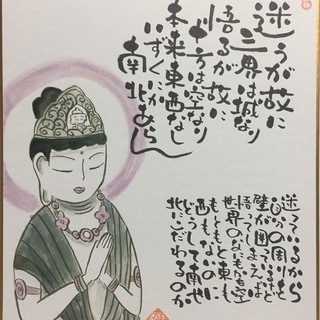 迷うが故に
三界は城なり
悟るが故に
十方は空なり
本来東西なし
いずくにか
南北あらん
迷っているから
自分の周りを
壁が囲っているけど
悟ってしまえば
世界のなにもかも空
もともと東も
西もないのに
どうして南や
北にこだわるのか